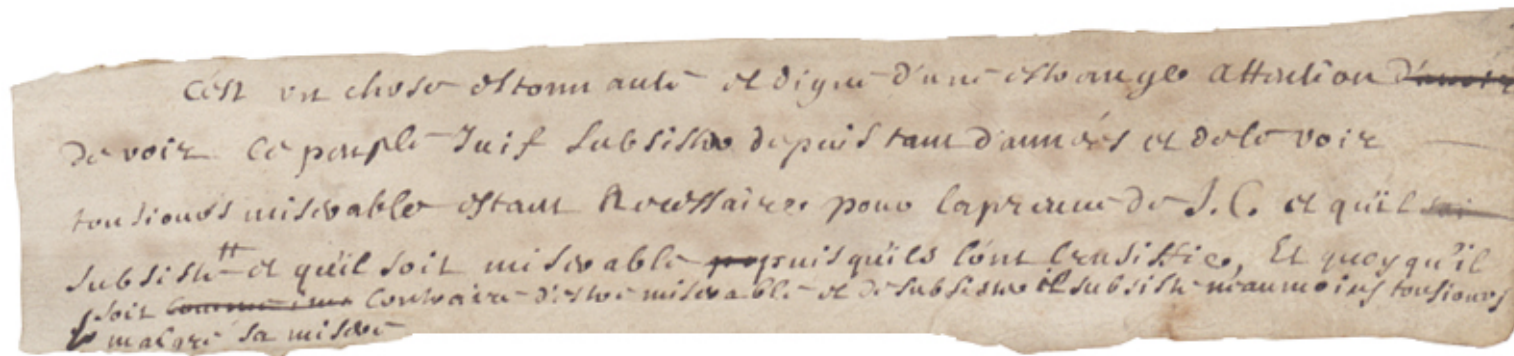 C'est un chose estonnante et digne d'une estrange attention d'avoir
de voir ce peuple Juif subsister depuis tant d'années et de le voir
tousiours miserable estant necessaire pour la preuve de J.C. et qu'il soi
subsiste et qu'il soit miserable puisqu'ils l'ont crusifie, Et quoy qu'il
soit contraire d'estre miserable et de subsister il subsiste neaumoins tousiours
malgré sa misere